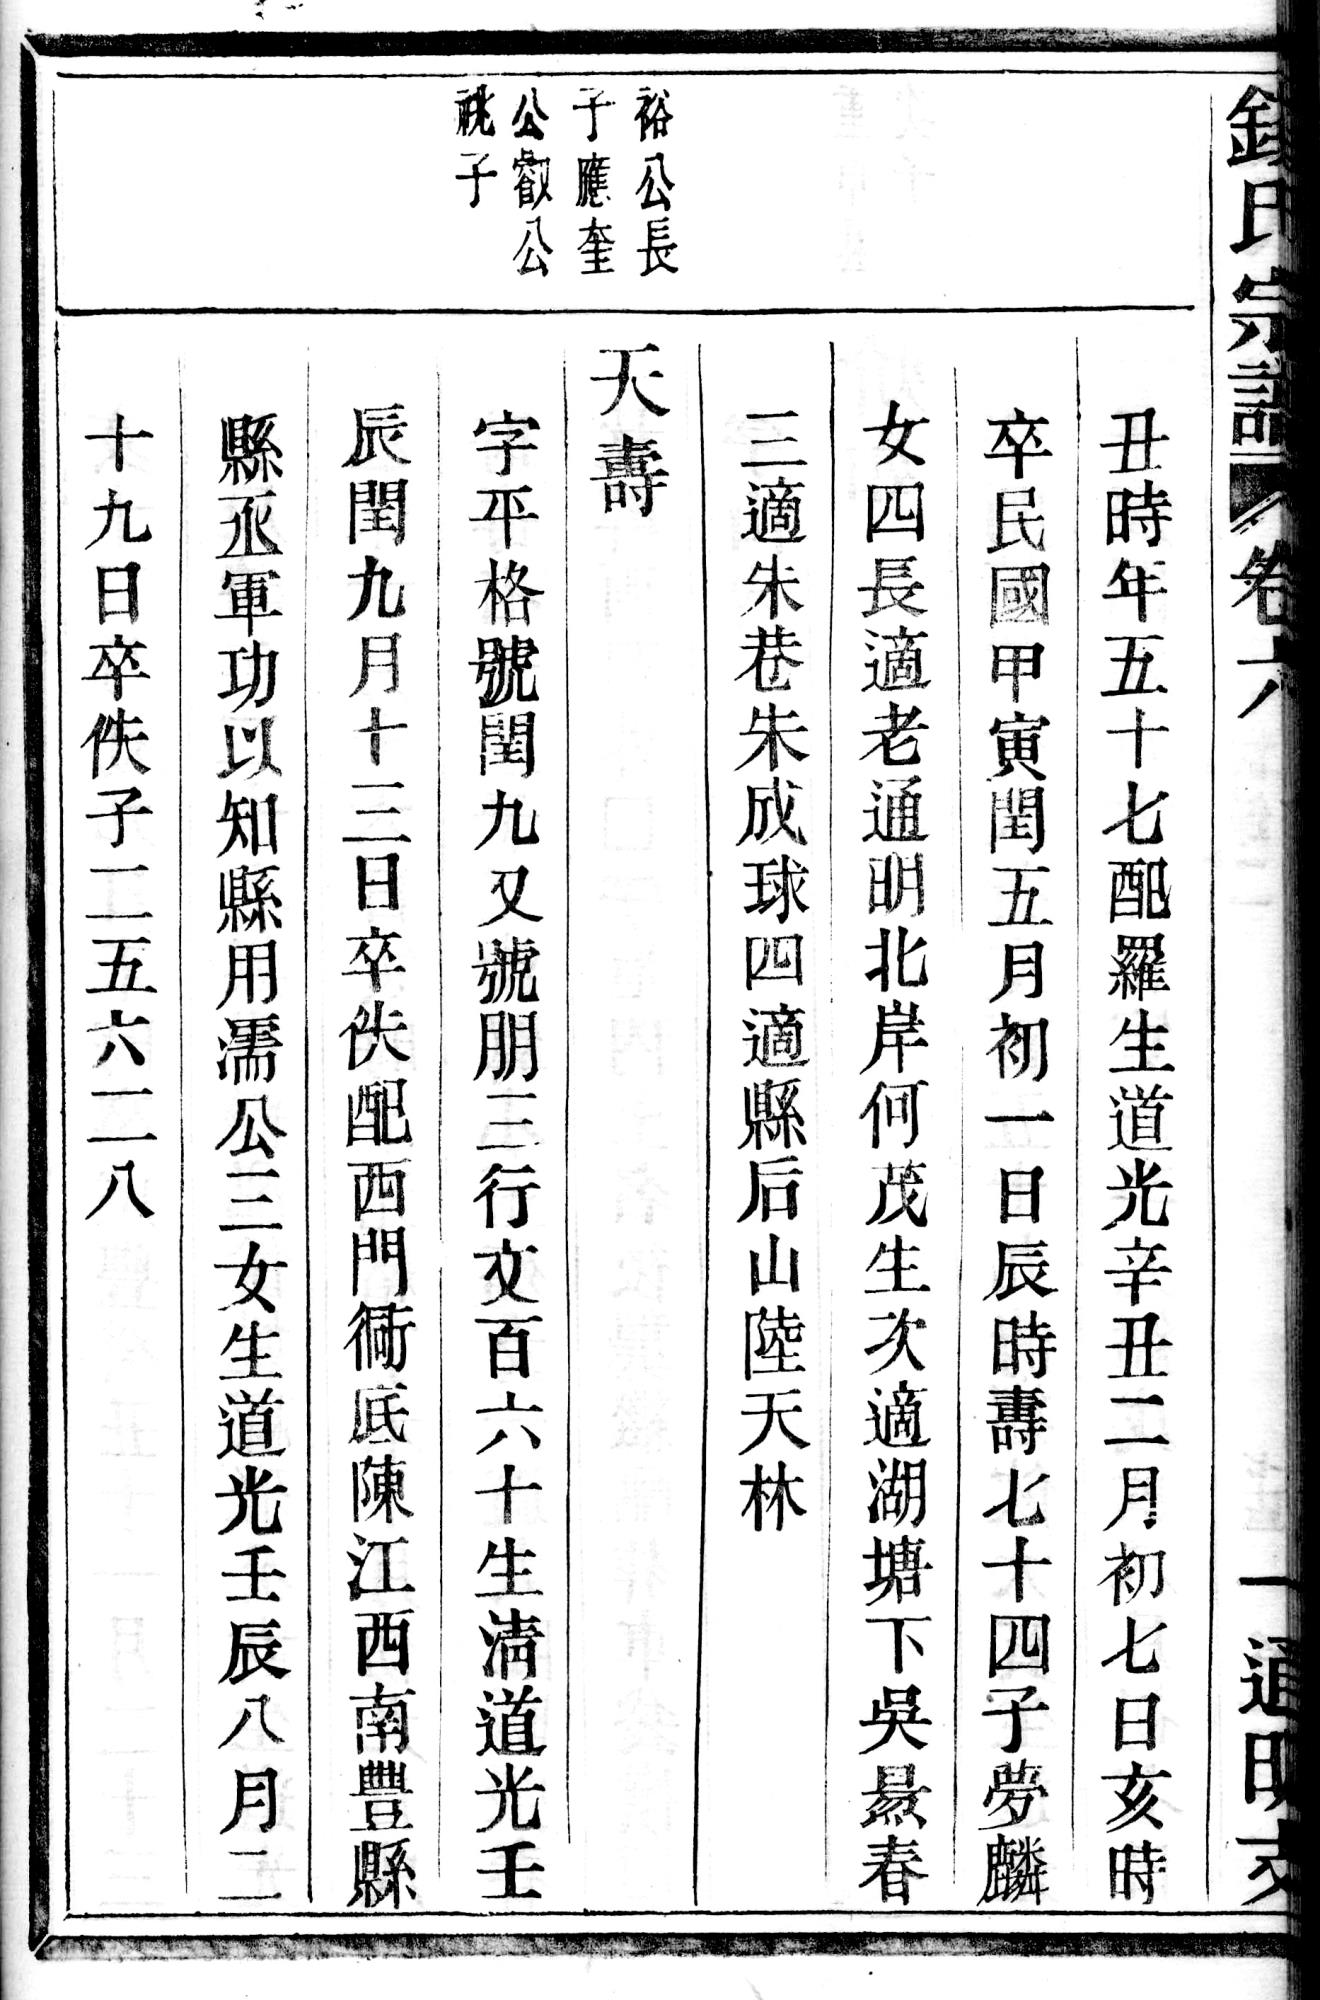 氏宗譜 卷六 一 通明支
丑時年五十七配羅生道光辛丑二月初七日亥時
卒民國甲寅閏五月初一日辰時壽七十四子夢麟
女四長適老通明北岸何茂生次適湖塘下吳㬎春
三適朱巷朱成球四適縣后山陸天林
裕公長
子應奎
公叡公
祧子
天壽
字平格號閏九又號朋三行文百六十生淸道光壬
辰閏九月十三日卒佚配西門衕底陳江西南豐縣
縣丞軍功以知縣用濡公三女生道光壬辰八月二
十九日卒佚子二五六一二八